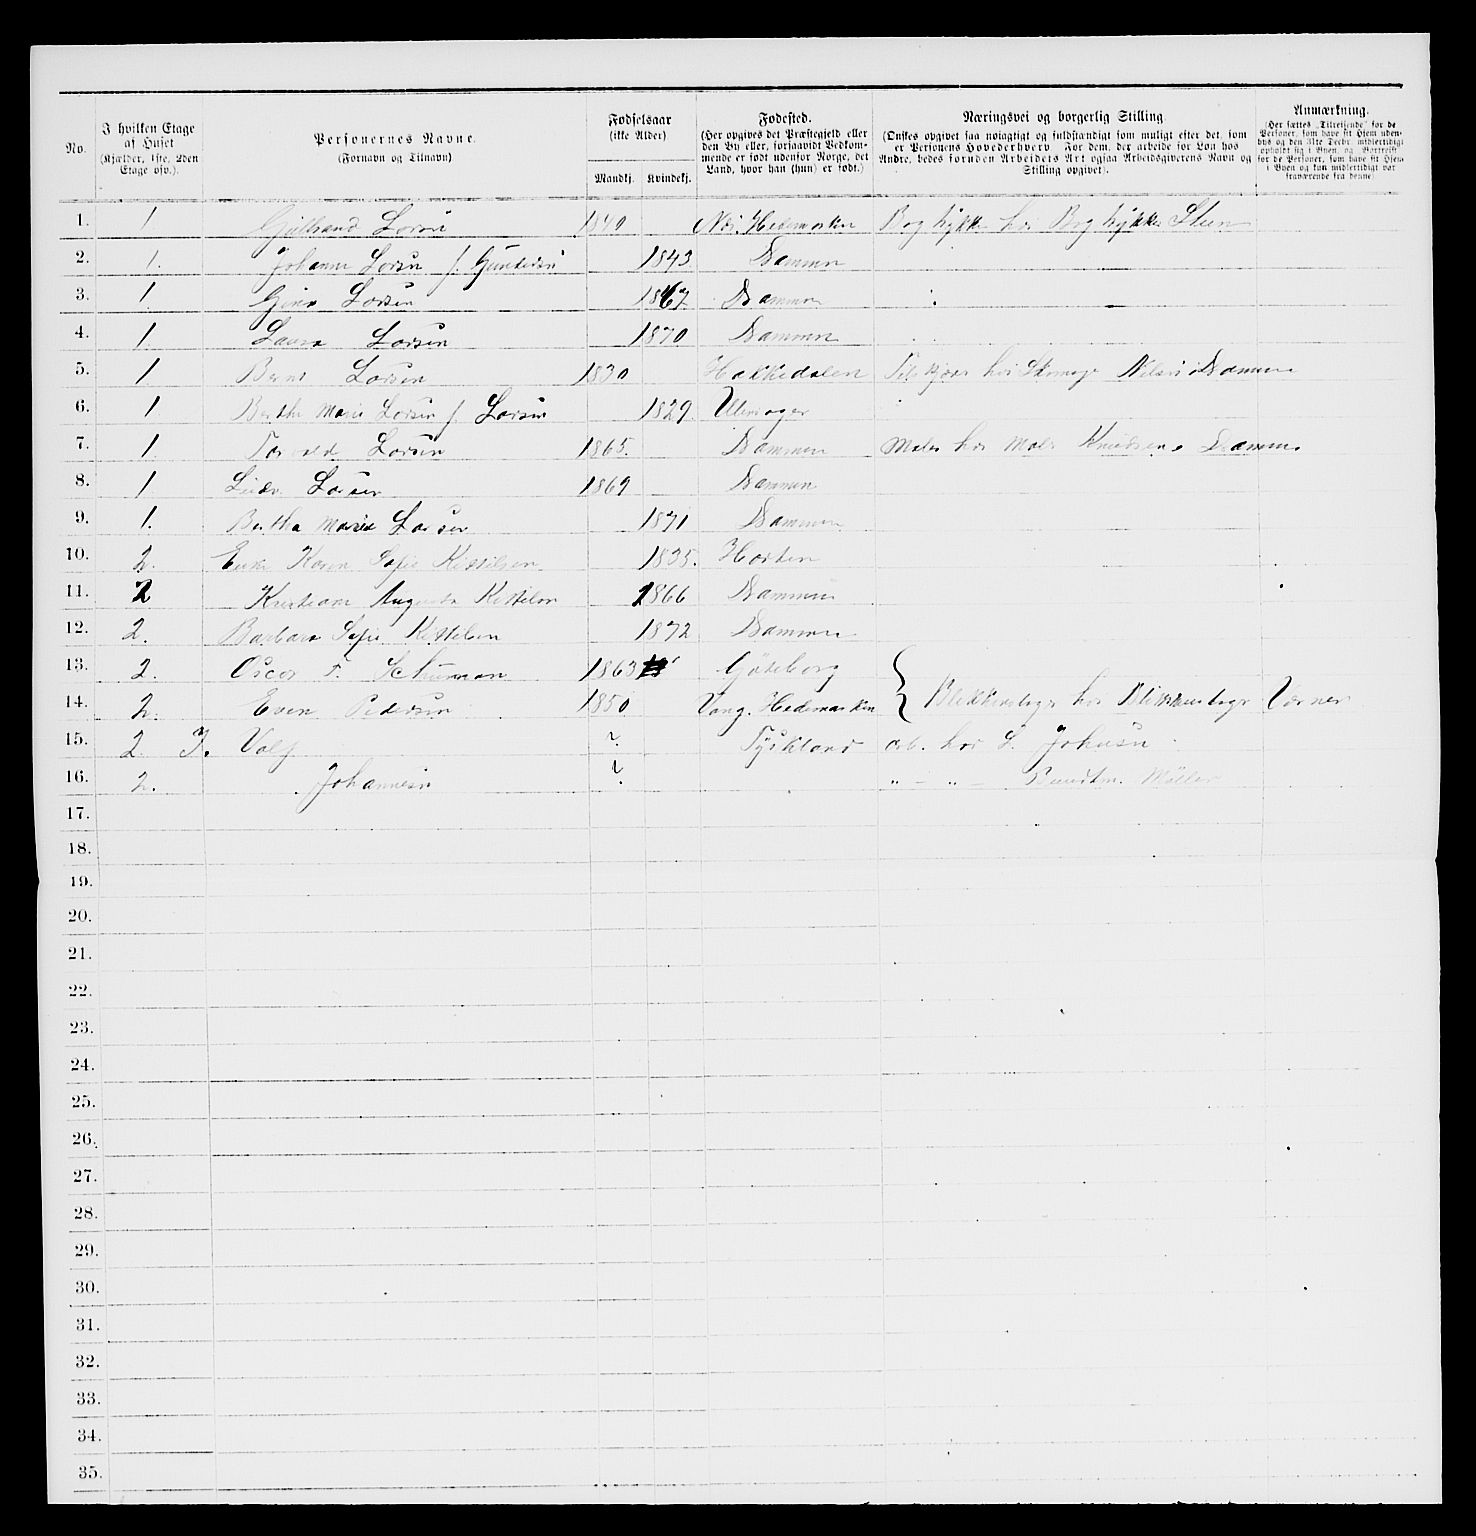 No.
I hvilken Etage af Huset (Kjælder, 1ste, 2den Etage osv.).
Personernes Navne.
(Fornavn og Tilnavn)
Fødselsaar
(ikke Alder)
Mandkj. Kvindekj.
Fødested.
(Her opgives det Præstegjeld eller den By eller, forsaavidt Vedkommende er født udenfor Norge, det Land, hvor han (hun) er født.)
Næringsvei og borgerlig Stilling
(Ønskes opgivet saa nøiagtigt og fuldstændigt som muligt efter det, som er Personens Hovederhverv For dem, der arbeide for Løn hos Andre, bedes foruden Arbeidets Art ogsaa Arbeidsgiverens Navn og Stilling opgivet).
Anmærkning.
(Her sættes „Tilreisende" for de Personer, som have sit Hjem udenbys og den 31te Decbr. midlertidigt opholdt sig i Byen, og „Bortreist" for de Personer, som have sit Hjem i Byen og kun midlertidigt var fraværende fra denne)
1. 1 Larsen 1840 Hedemarken Bogtykker hos Bogtykker Steen
2. 1. Johanne Larsen f. Gundersen 1843 Dammen
3. 1 Gina Larsen 1867 Dammen
4. 1 Laura Larsen 1870 Dammen
5. 1 Bernt Larsen 1830 Hakkedalen hos Nilsen i Dammen
6. 1 Berthe Marie Larsen f. Larsen 1829 Ullensager
7. 1 Larsen 1865. Dammen Maler hos Maler Knudsen Drammen
8. 1 Larsen 1869 Dammen
9. 1. Bertha Maria Larsen 1871 Dammen
10. 2. Enke Karen Sofie Kittilsen 1835. Horten
11. 2 Kristiane Augusta Kittilsen 1866 Dammen
12. 2. Barbara Sofie Kittilsen 1872 Dammen
13. 2. Oscar F. Schuman 1863 Göteborg
14. 2. Even Pedersen 1850 Vang. Hedemarken } Blikkenslager hos Blikkenslager Værner
15. 2. J. Valf ? Tyskland arb. hos L. Johnsen
16. 2. Johannesen ? „ – „ – Møller
17.
18.
19.
20.
21.
22.
23.
24.
25.
26.
27.
28.
29.
30.
31.
32.
33.
34.
35.